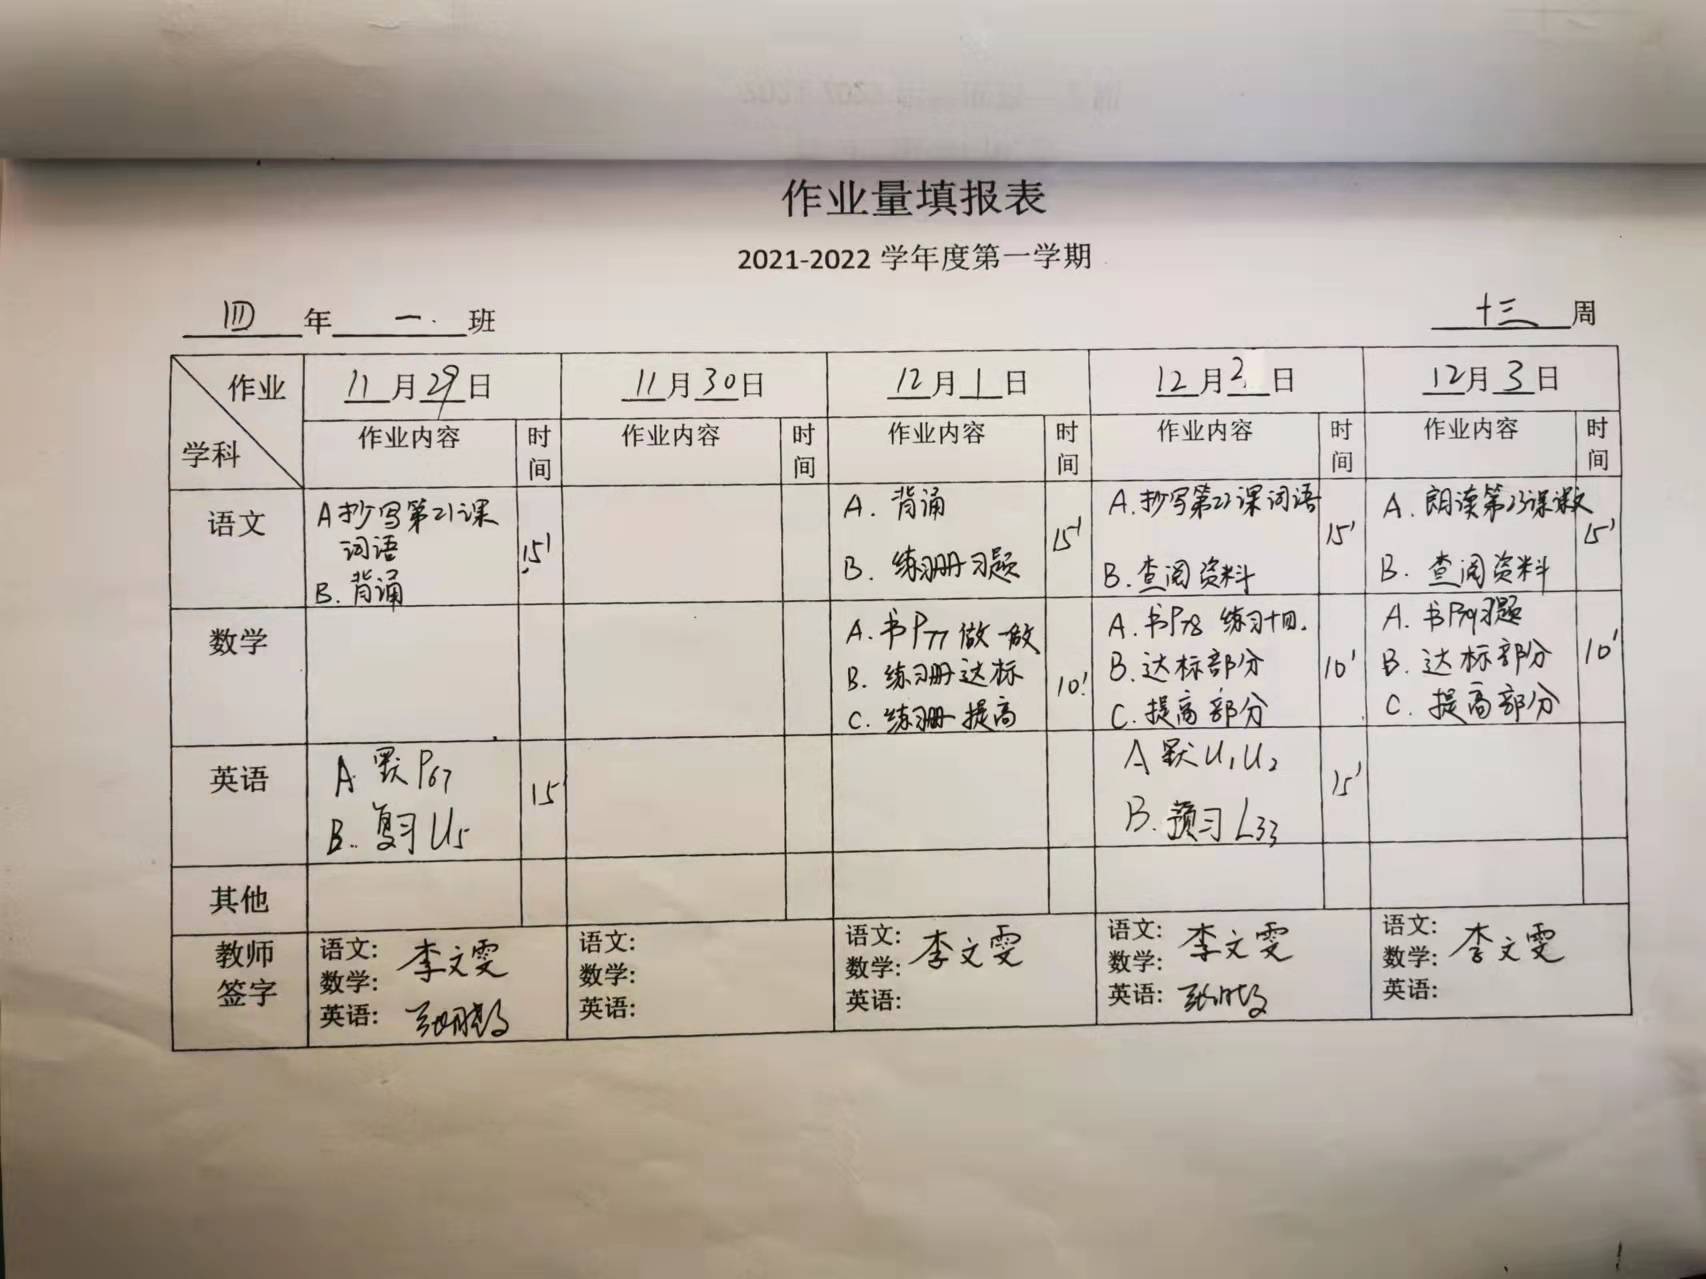 作业量填报表
2021-2022 学年度第一学期
四 年 一. 班 十三 周
作业 11 月 29 日 11 月 30 日 12 月 1 日 12 月 2 日 12 月 3 日
学科 作业内容 时间 作业内容 时间 作业内容 时间 作业内容 时间 作业内容 时间
语文
A 抄写第21课
词语
B. 背诵
15'
A. 背诵
B. 练习册习题
15'
A. 抄写第22课词语
B. 查阅资料
15'
A. 朗读第23课课文
B. 查阅资料
15'
数学
A. 书P77 做一做
B. 练习册达标
C. 练习册提高
10'
A. 书P78 练习十四.
B. 达标部分
C. 提高部分
10'
A. 书P79习题
B. 达标部分
C. 提高部分
10'
英语
A. 默P67
B. 复习 U5
15'
A 默 U1 U2
B. 预习 L33
15'
其他
教师
签字
语文: 李文雯
数学:
英语:
语文:
数学:
英语:
语文: 李文雯
数学:
英语:
语文: 李文雯
数学:
英语:
语文: 李文雯
数学:
英语: